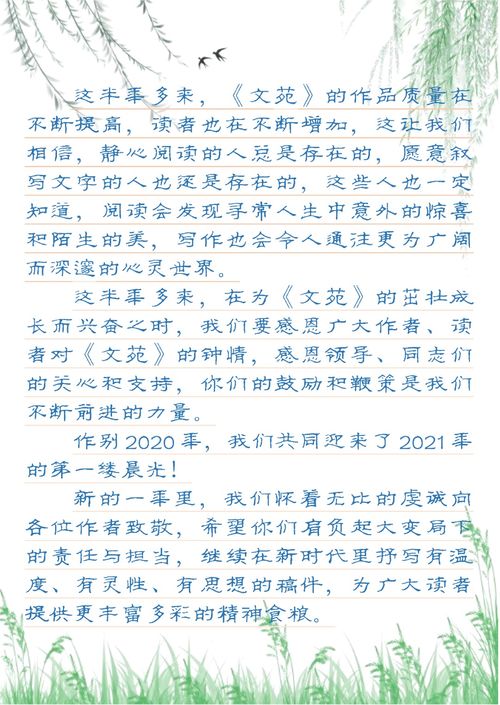 这半年多来，《文苑》的作品质量在
不断提高，读者也在不断增加，这让我们
相信，静心阅读的人总是存在的，愿意叙
写文字的人也还是存在的，这些人也一定
知道，阅读会发现寻常人生中意外的惊喜
和陌生的美，写作也会令人通往更为广阔
而深邃的心灵世界。
这半年多来，在为《文苑》的茁壮成
长而兴奋之时，我们要感恩广大作者、读
者对《文苑》的钟情，感恩领导、同志们
的关心和支持，你们的鼓励和鞭策是我们
不断前进的力量。
作别2020年，我们共同迎来了2021年
的第一缕晨光！
新的一年里，我们怀着无比的虔诚向
各位作者致敬，希望你们肩负起大变局下
的责任与担当，继续在新时代里抒写有温
度、有灵性、有思想的稿件，为广大读者
提供更丰富多彩的精神食粮。